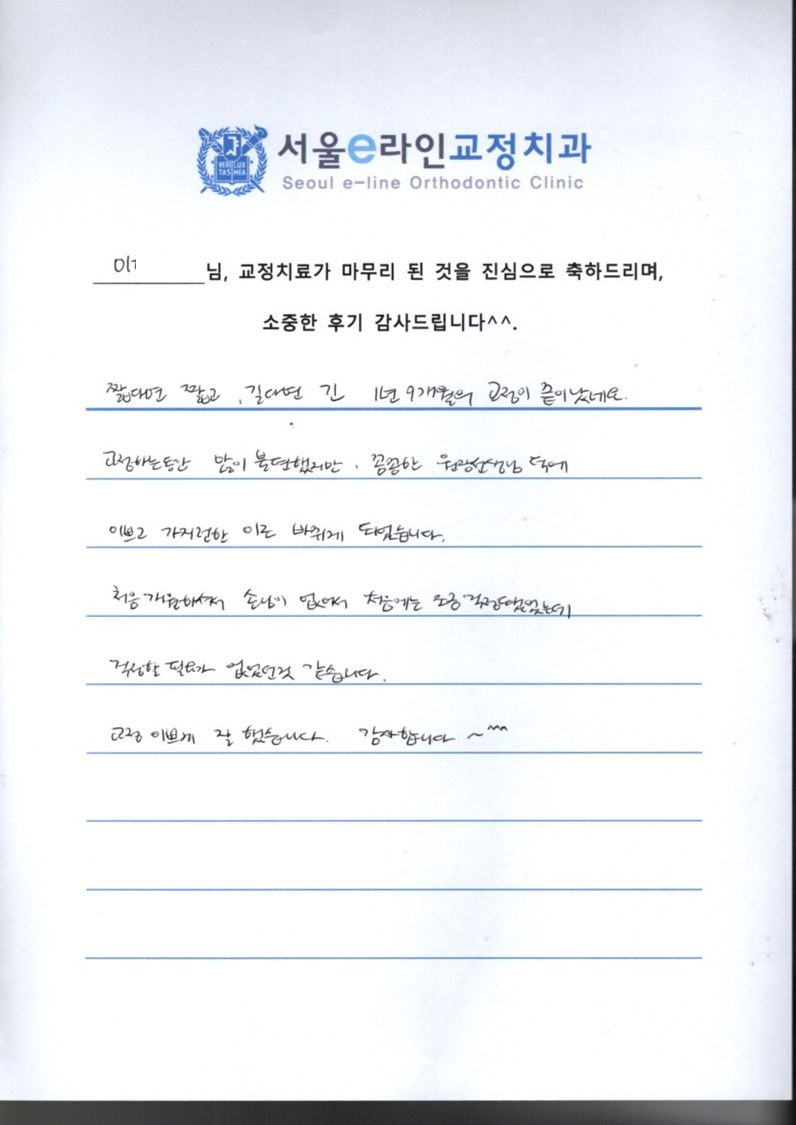 서울e라인교정치과
Seoul e-line Orthodontic Clinic
VERI LUX
TAS MEA
님, 교정치료가 마무리 된 것을 진심으로 축하드리며,
소중한 후기 감사드립니다^^.
짧다면 짧고, 길다면 긴 1년 9개월의 교정이 끝이났네요.
교정하는동안 많이 불편했지만, 꼼꼼한 원장선생님 덕에
이쁘고 가지런한 이로 바뀌게 되었습니다.
처음 개원하셔서 손님이 없어서 처음에는 조금 걱정됐었는데
걱정할 필요가 없었던것 같습니다.
교정 이쁘게 잘 했습니다. 감사합니다 ~^^